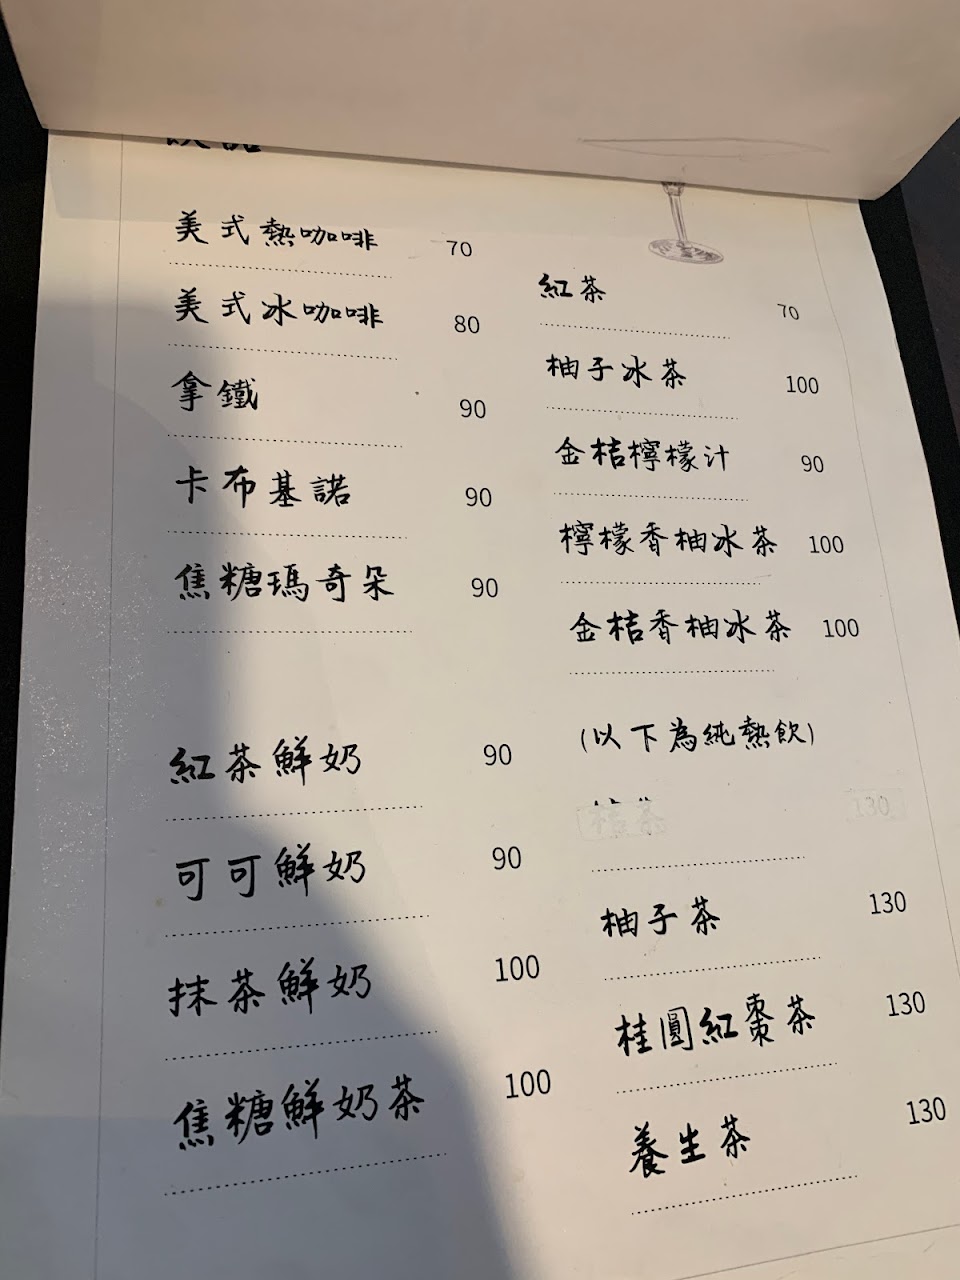 美式熱咖啡 70
美式冰咖啡 80
拿鐵 90
卡布基諾 90
焦糖瑪奇朵 90
紅茶鮮奶 90
可可鮮奶 90
抹茶鮮奶 100
焦糖鮮奶茶 100
紅茶 70
柚子冰茶 100
金桔檸檬汁 90
檸檬香柚冰茶 100
金桔香柚冰茶 100
(以下為純熱飲)
桔茶 130
柚子茶 130
桂圓紅棗茶 130
養生茶 130